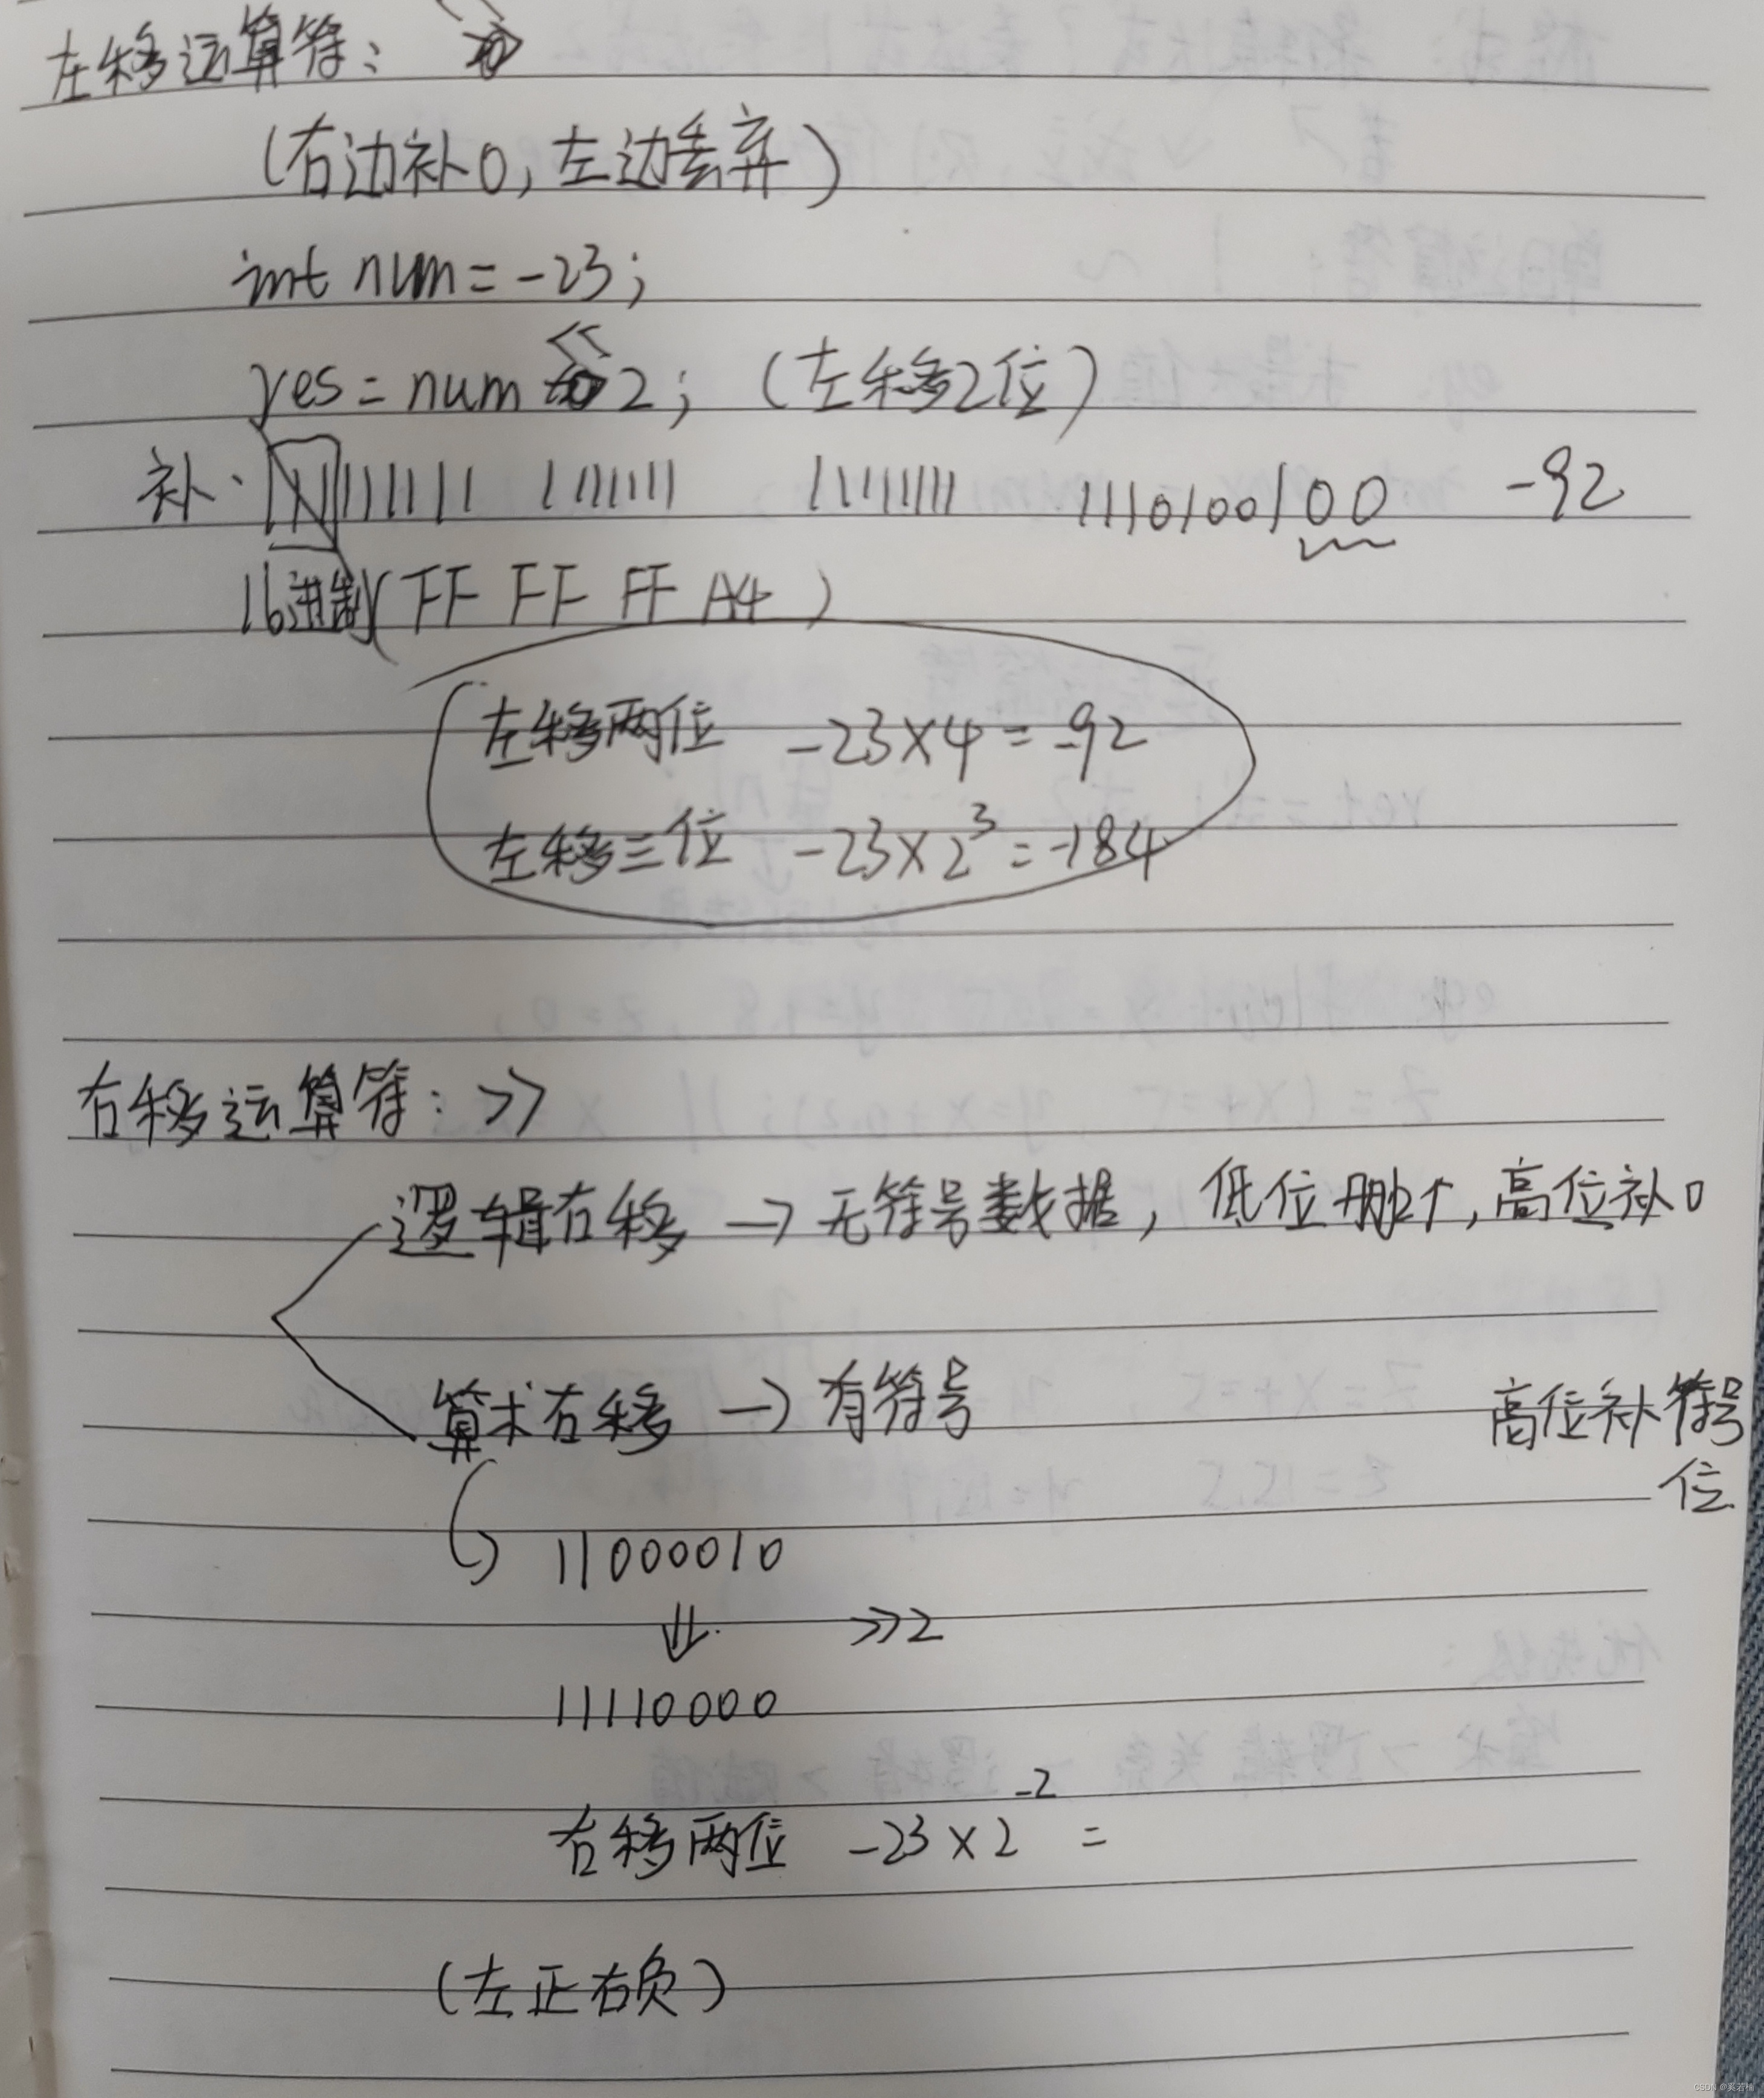 左移运算符: <<
(右边补0, 左边丢弃)
int num = -23;
res = num << 2; (左移2位)
补. 11111111 1111111 11111111 1110100100 -92
16进制(FF FF FF A4)
左移两位 -23×4 = -92
左移三位 -23×2³ = -184
右移运算符: >>
逻辑右移 → 无符号数据, 低位删掉, 高位补0
算术右移 → 有符号 高位补符号位
11000010
⇓ >>2
11110000
右移两位 -23×2⁻² =
(左正右负)
CSDN